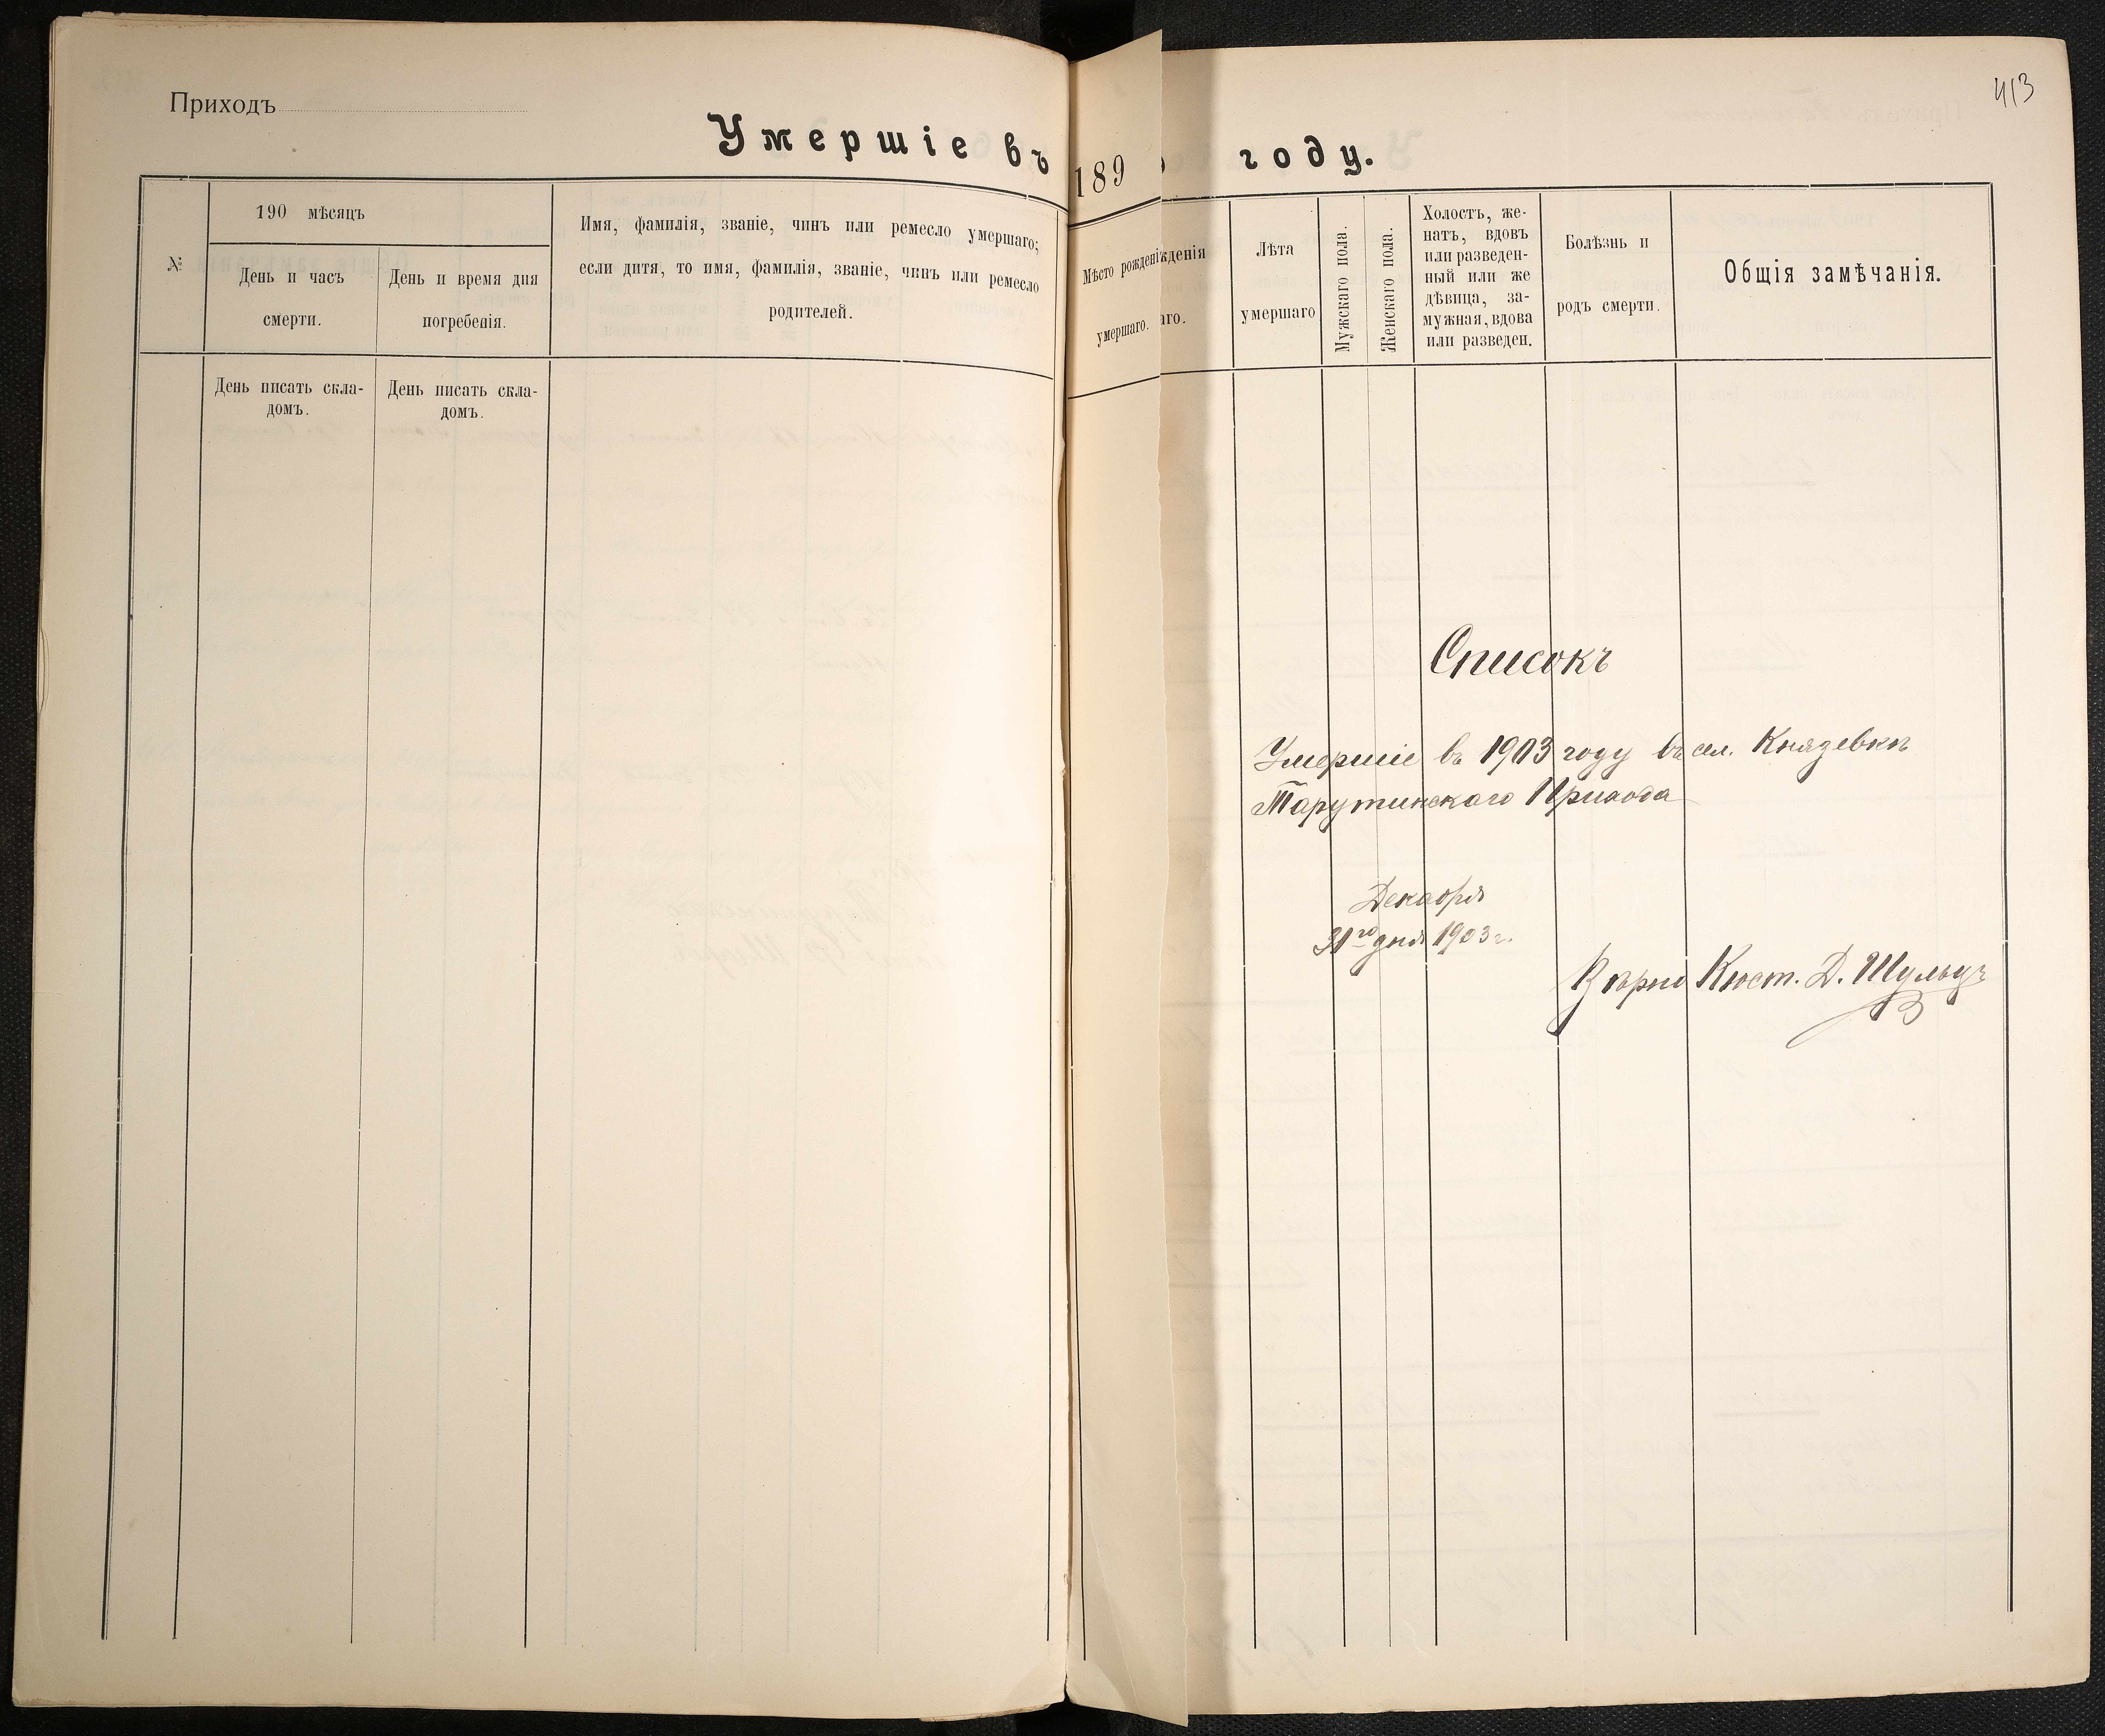 413
Приходъ
Умершіе въ 189 году.
№
190 мѣсяцъ
День и часъ
смерти.
День и время дня
погребенія.
Имя, фамилія, званіе, чинъ или ремесло умершаго;
если дитя, то имя, фамилія, званіе, чинъ или ремесло
родителей.
Мѣсто рожденія
умершаго.
жденія
аго.
Лѣта
умершаго
Мужскаго пола.
Женскаго пола.
Холостъ, же-
натъ, вдовъ
или разведен-
ный или же
дѣвица, за-
мужная, вдова
или разведен.
Болѣзнь и
родъ смерти.
Общія замѣчанія.
День писать скла-
домъ.
День писать скла-
домъ.
Списокъ
Умершіе въ 1903 году въ сел. Князевкѣ
Тарутинскаго Прихода
Декабря
31го дня 1903 г.
Вѣрно Кюст. Д. Шульцъ